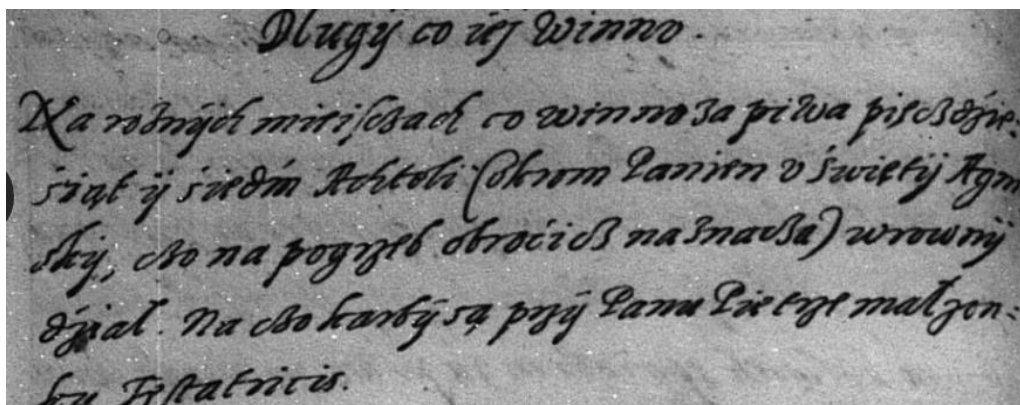 Dlugÿ co ieÿ winno.
Na roznÿch mieisczach co winno za piwa pięczdzie-
siąt ÿ siedm Achtoli (okrom Panien v świętÿ Agni
skÿ, czo na pogrzeb obroćicz naznacza) wrownÿ
dział. Na czo karbÿ są przÿ Panu Pietrze małzon-
ku Testatricis.